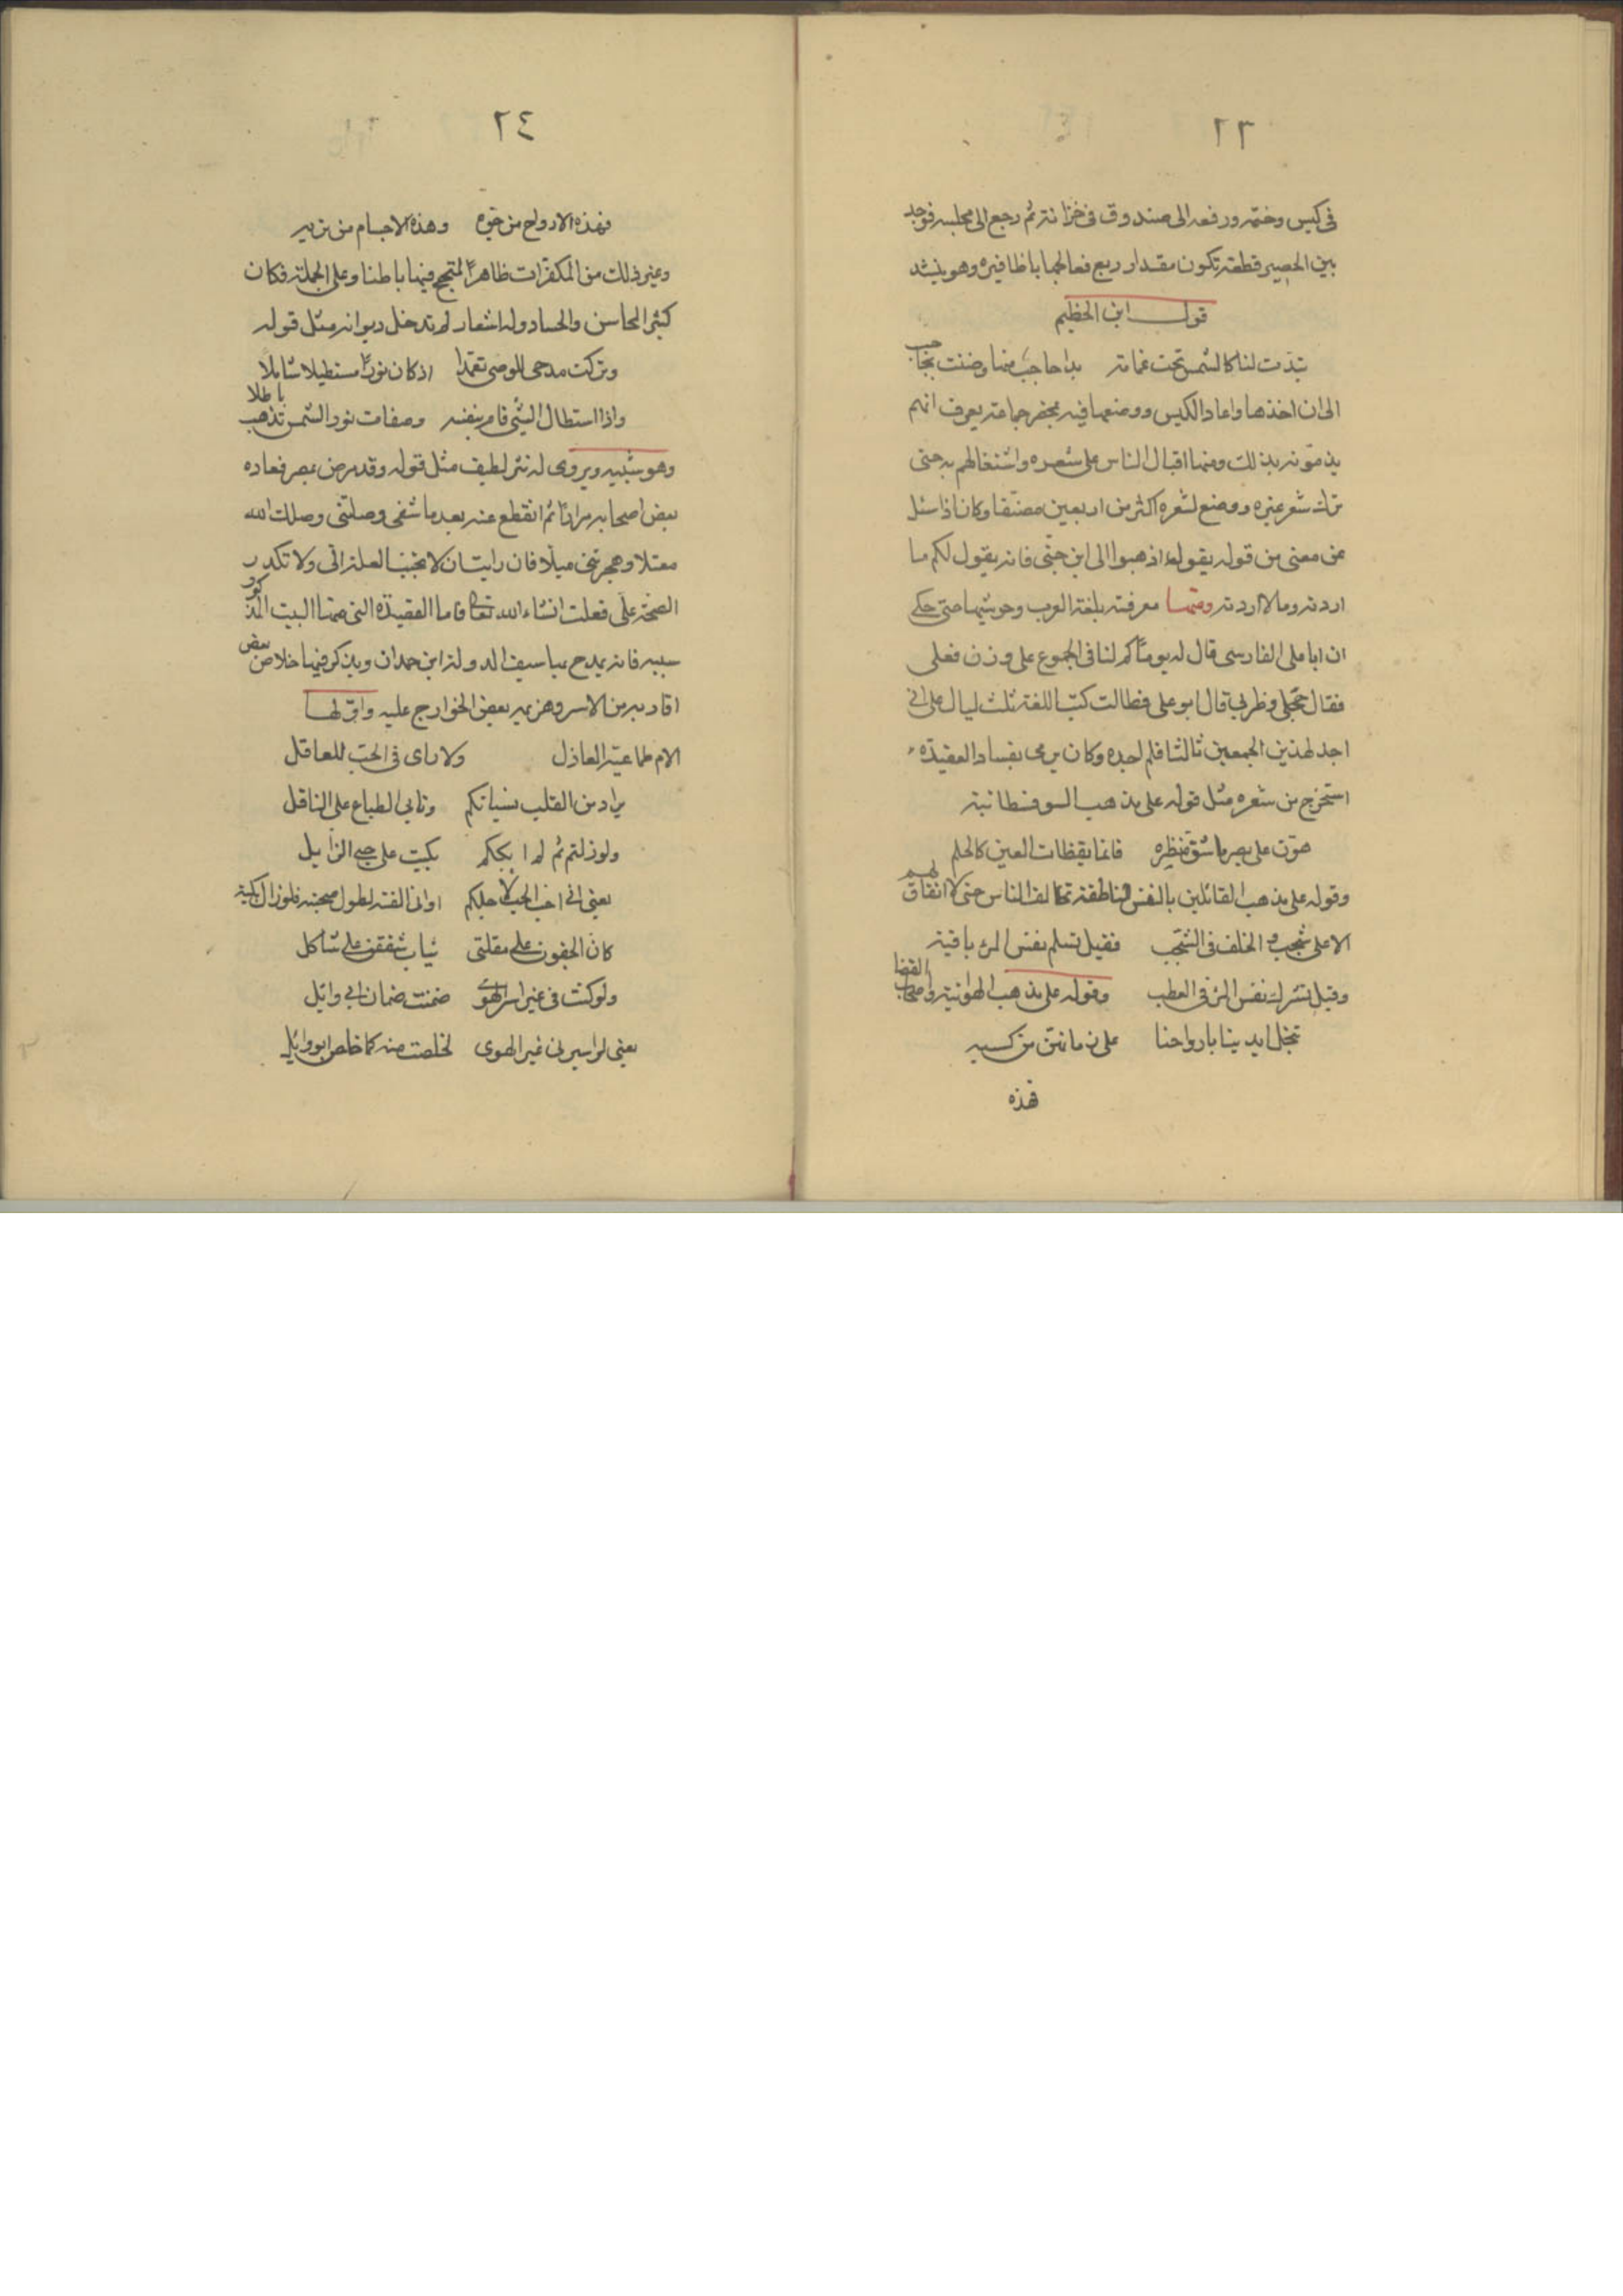 ٢٣
في كيس وختمه ورفعه الى صندوق في خزانته ثم رجع الى مجلسه فوجد
بين الحصير قطعة تكون مقدار ربع فعالجها باظافيره وهو ينشد
قول ابن الحظيم
تبدّت لنا كالشمس تحت غمامة بدا حاجب منها وضنت بحاجب
الى ان اخذها واعاد الكيس ووضعها فيه بمحضر جماعة يعرف انهم
يذمّونه بذلك ومنها اقبال الناس على شعره واشتغالهم به حتى
ترك شعر غيره ووضع لشعره اكثر من اربعين مصنّفا وكان اذا سئل
عن معنى من قوله يقول اذهبوا الى ابن جنّى فانه يقول لكم ما
اردته وما لا اردته ومنها معرفته بلغة العرب وحوشيها حتى حكى
ان ابا على الفارسى قال له يوما كم لنا في الجموع على وزن فعلى
فقال حجلى وظربى قال ابو على فطالت كتب اللغة ثلث ليال على انى
اجد لهذين الجمعين ثالثا فلم اجده وكان يرمى بفساد العقيدة
استخرج من شعره مثل قوله على مذهب السوفسطانية
هوّن على بصر ما شقّ منظره فانما يقظات العين كالحلم
وقوله على مذهب القائلين بالنفس الناطقة تخالف الناس حتى لا اتفاق لهم
الا على شجب والخلف في الشجب فقيل تسلم نفس المرء باقية
وقيل تشرك نفس المرء في العطب وقوله على مذهب الهوائية واصحاب الفضا
تبخل ايدينا بارواحنا على زمان هنّ من كسبه
فهذه
٢٤
فهذه الارواح من جوّه وهذه الاجسام من تربه
وغير ذلك من المكفّرات ظاهرا فيها باطنا وعلى الجملة فكان
كثير المحاسن والحساد وله اشعار لم تدخل ديوانه مثل قوله
وتركت مدحى للوصى تعمّدا اذ كان نورا مستطيلا شاملا
واذا استطال الشئ قام بنفسه وصفات نور الشمس تذهب باطلا
وهو شبيه ويروى له نثر لطيف مثل قوله وقد مرض بمصر فعاده
بعض اصحابه مرارا ثم انقطع عنه بعد ما شفى وصلتنى وصلك الله
معتلا وهجرتنى مبلّا فان رايت ان لا تحبب العلة الىّ ولا تكدر
الصحة علىّ فعلت انشاء الله تعالى فاما القصيدة التى منها البيت المذكور
سببه فانه يمدح بها سيف الدولة ابن حمدان ويذكر فيها خلاص بعض
اقاربه من الاسر وهزمه بعض الخوارج عليه واوّلها
الام طماعية العاذل ولا راى في الحب للعاقل
يراد من القلب نسيانكم وتابى الطباع على الناقل
ولو زلتم ثم لم ابككم بكيت على حبى الزايل
يعنى انى احب الحب لاجلكم او انى الفته لطول صحبته فلو زال بكيته
كانّ الجفون على مقلتى ثياب شققن على ثاكل
ولو كنت في غير اسر الهوى ضمنت ضمان ابى وايل
يعنى لو اسرنى غير الهوى لخلصت منه كما خلص ابو وايل